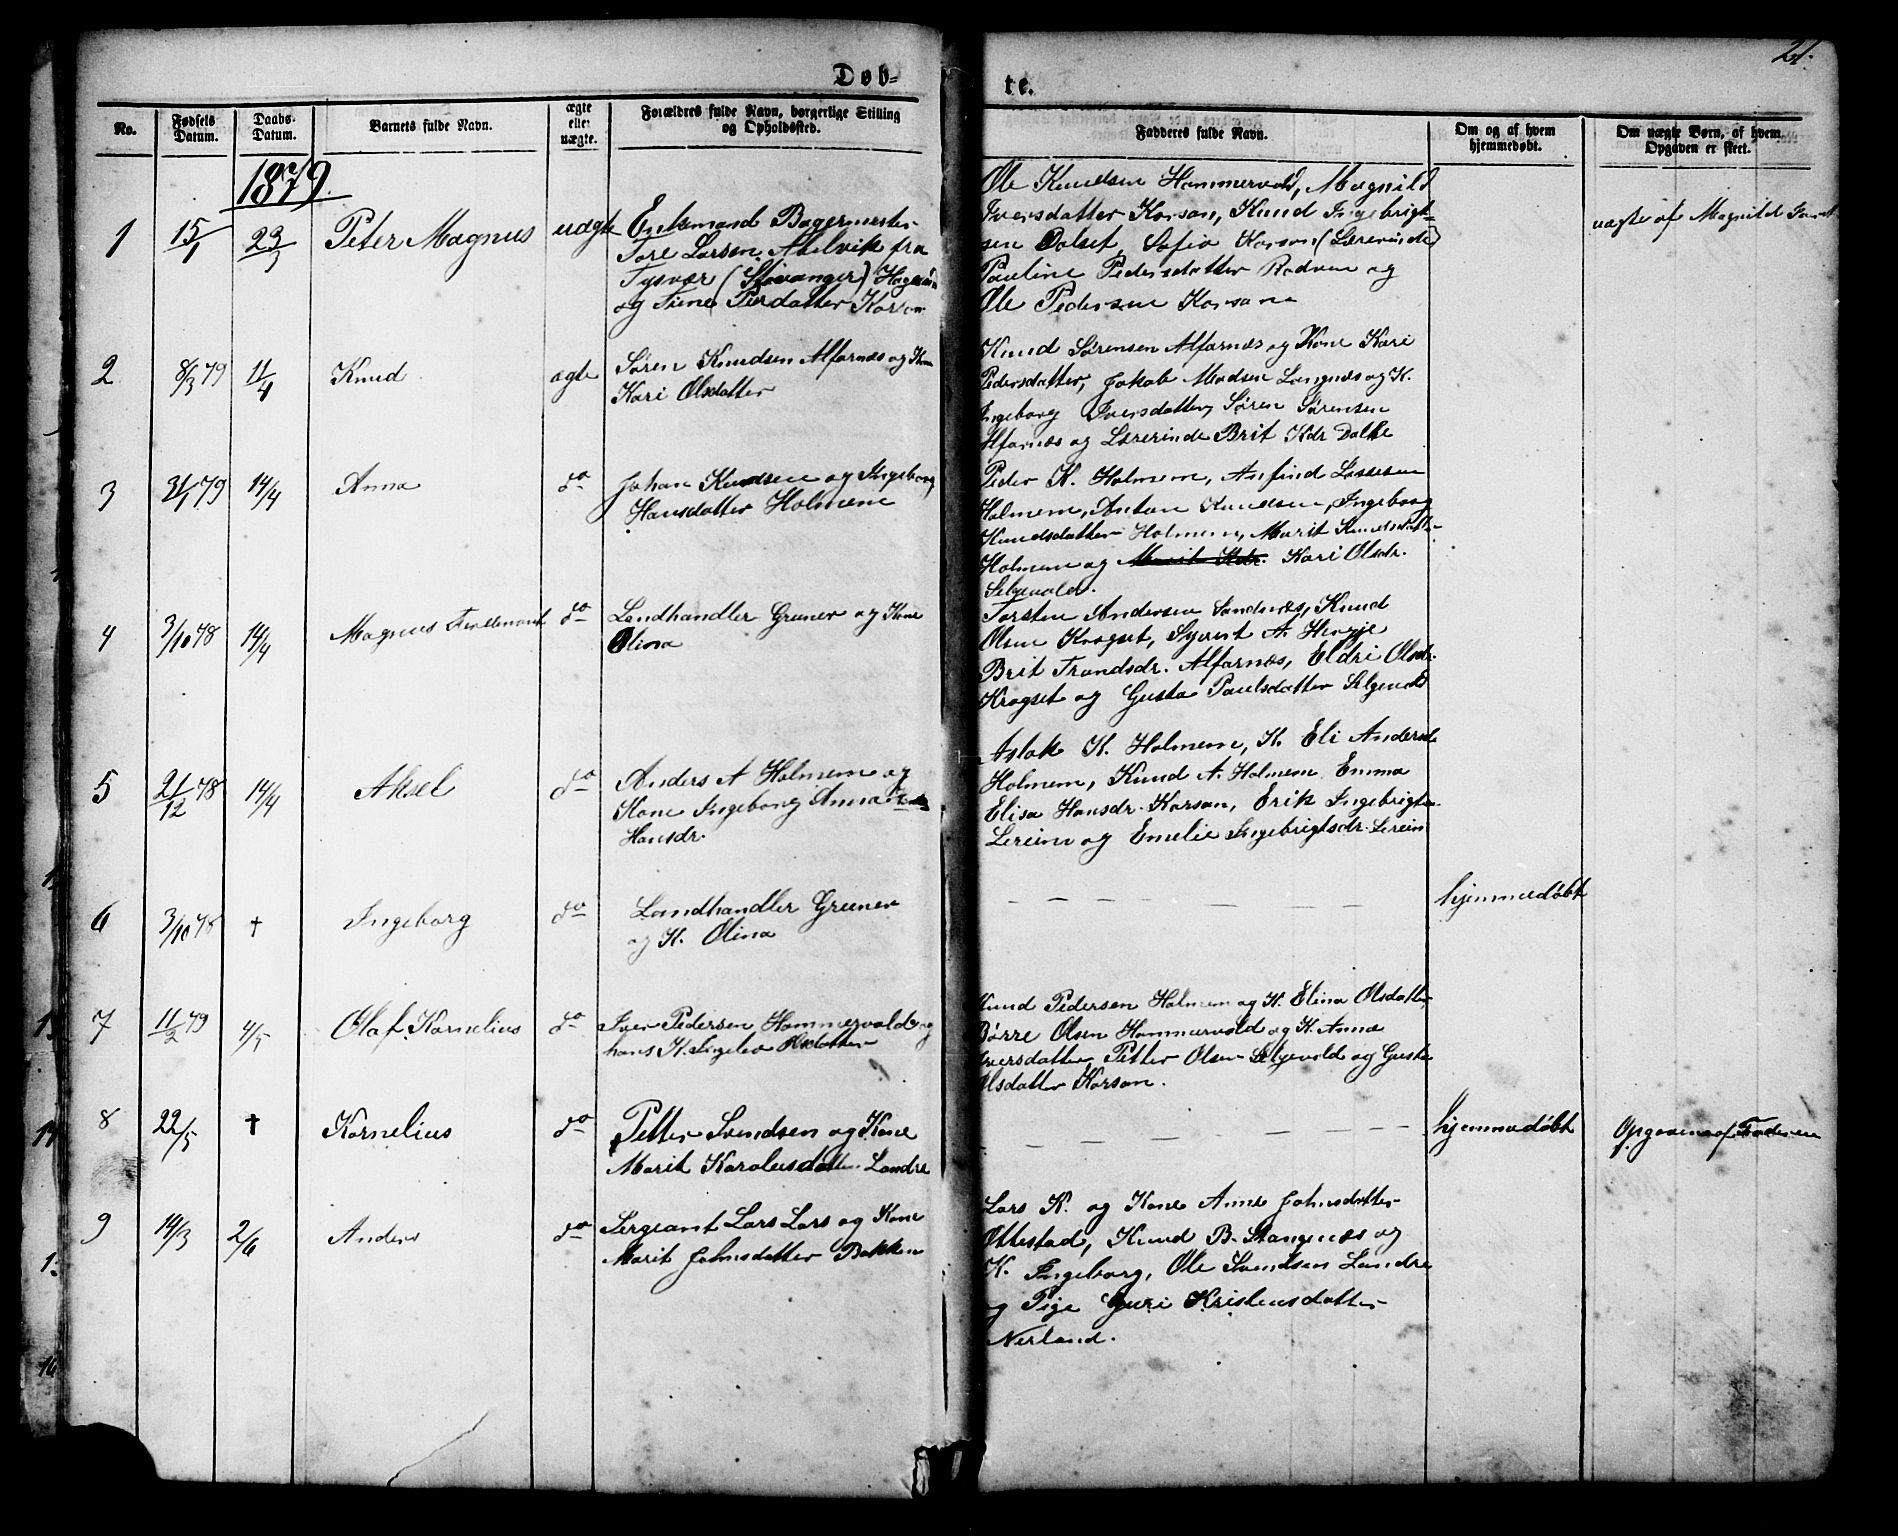 21.
Døb-
te.
No.
Fødsels Datum.
Daabs-Datum.
Barnets fulde Navn.
ægte eller uægte.
Forældres fulde Navn, borgerlige Stilling og Opholdssted.
Fadderes fulde Navn.
Om og af hvem hjemmedøbt.
Om uægte Børn, af hvem Opgaven er skeet.
1879.
1 15/1 23/3 Peter Magnus uægte
Enkemand Bagermester
Tore Larsen fra
Tysvær (Stavanger)
og Tine Pedersdatter Korsan
Ole Knudsen Hammervold, Magnild
Iversdatter Korsan, Knud Ingebrigt-
sen Dalset, Sofia Korsan (Lærerinde)
Pauline Pedersdatter Rødven og
Ole Pedersen Korsan
uægte af Magnild
2 8/3 79 11/4 Knud ægte
Søren Knudsen Alfarnæs og Kone
Kari Olsdatter
Knud Sørensen Alfarnæs og Kone Kari
Pedersdatter, Jakob Madsen Langnæs og K.
Ingeborg Iversdatter, Søren Sørensen
Alfarnæs og Lærerinde Brit Kdr
3 31/1 79 14/4 Anna do
Johan Knudsen og Ingeborg
Hansdatter Holmem
Peder K. Holmem, Anfind Lassesen
Holmem, Anton Knudsen, Ingeborg
Knudsdatter Holmem, Marit Knudsdatter
Holmem og Marit Kdr. Kari Olsdr.
Selgevold.
4 3/10 78 14/4 Magnus do
Landhandler Gruner og Kone
Olina
Torsten Andersen Sandnæs, Knud
Olsen Krogset, Syvert A. Herje
Brit Trondsdr. Alfarnæs, Eldri Olsdr.
Krogset og Gusta Paulsdatter Selgevold
5 21/12 78 14/4 Aksel do
Anders A Holmem og
Kone Ingeborg Anna
Hansdr.
Aslak K. Holmem, K. Eli Andersd.
Holmem, Knud A. Holmem Emma
Elisa Hansdr. Korsan, Erik Ingebrigts.
Lereim og Emelie Ingebrigtsdr. Lereim
6 3/10 78 † Ingeborg do
Landhandler Gruner
og K. Olina
— — — — — — —
hjemmedøbt
7 11/2 79 4/5 Olaf Kornelius do
Iver Pedersen Hammervold og
hans K. Olsdatter
Knud Pedersen Holmem og K. Elina Olsdatter,
Børre Olsen Hammervold og K. Anna
Iversdatter, Petter Olsen Selgevold og Gusta
Olsdatter Korsan.
8 22/5 † Kornelius do
Petter Svendsen og Kone
Marit Karolusdatter Landre
— — — — — — —
hjemmedøbt
Opgaven af Faderen
9 14/3 2/6 Anders do
Sergeant Lars Lars og Kone
Marit Johnsdatter Bakken
Lars K. og Kone Anne Johnsdatter
Ottestad, Knud B. Stangnæs og
K. Ingeborg, Ole Svendsen Landre
og Pige Guri Kristensdatter
Nerland.